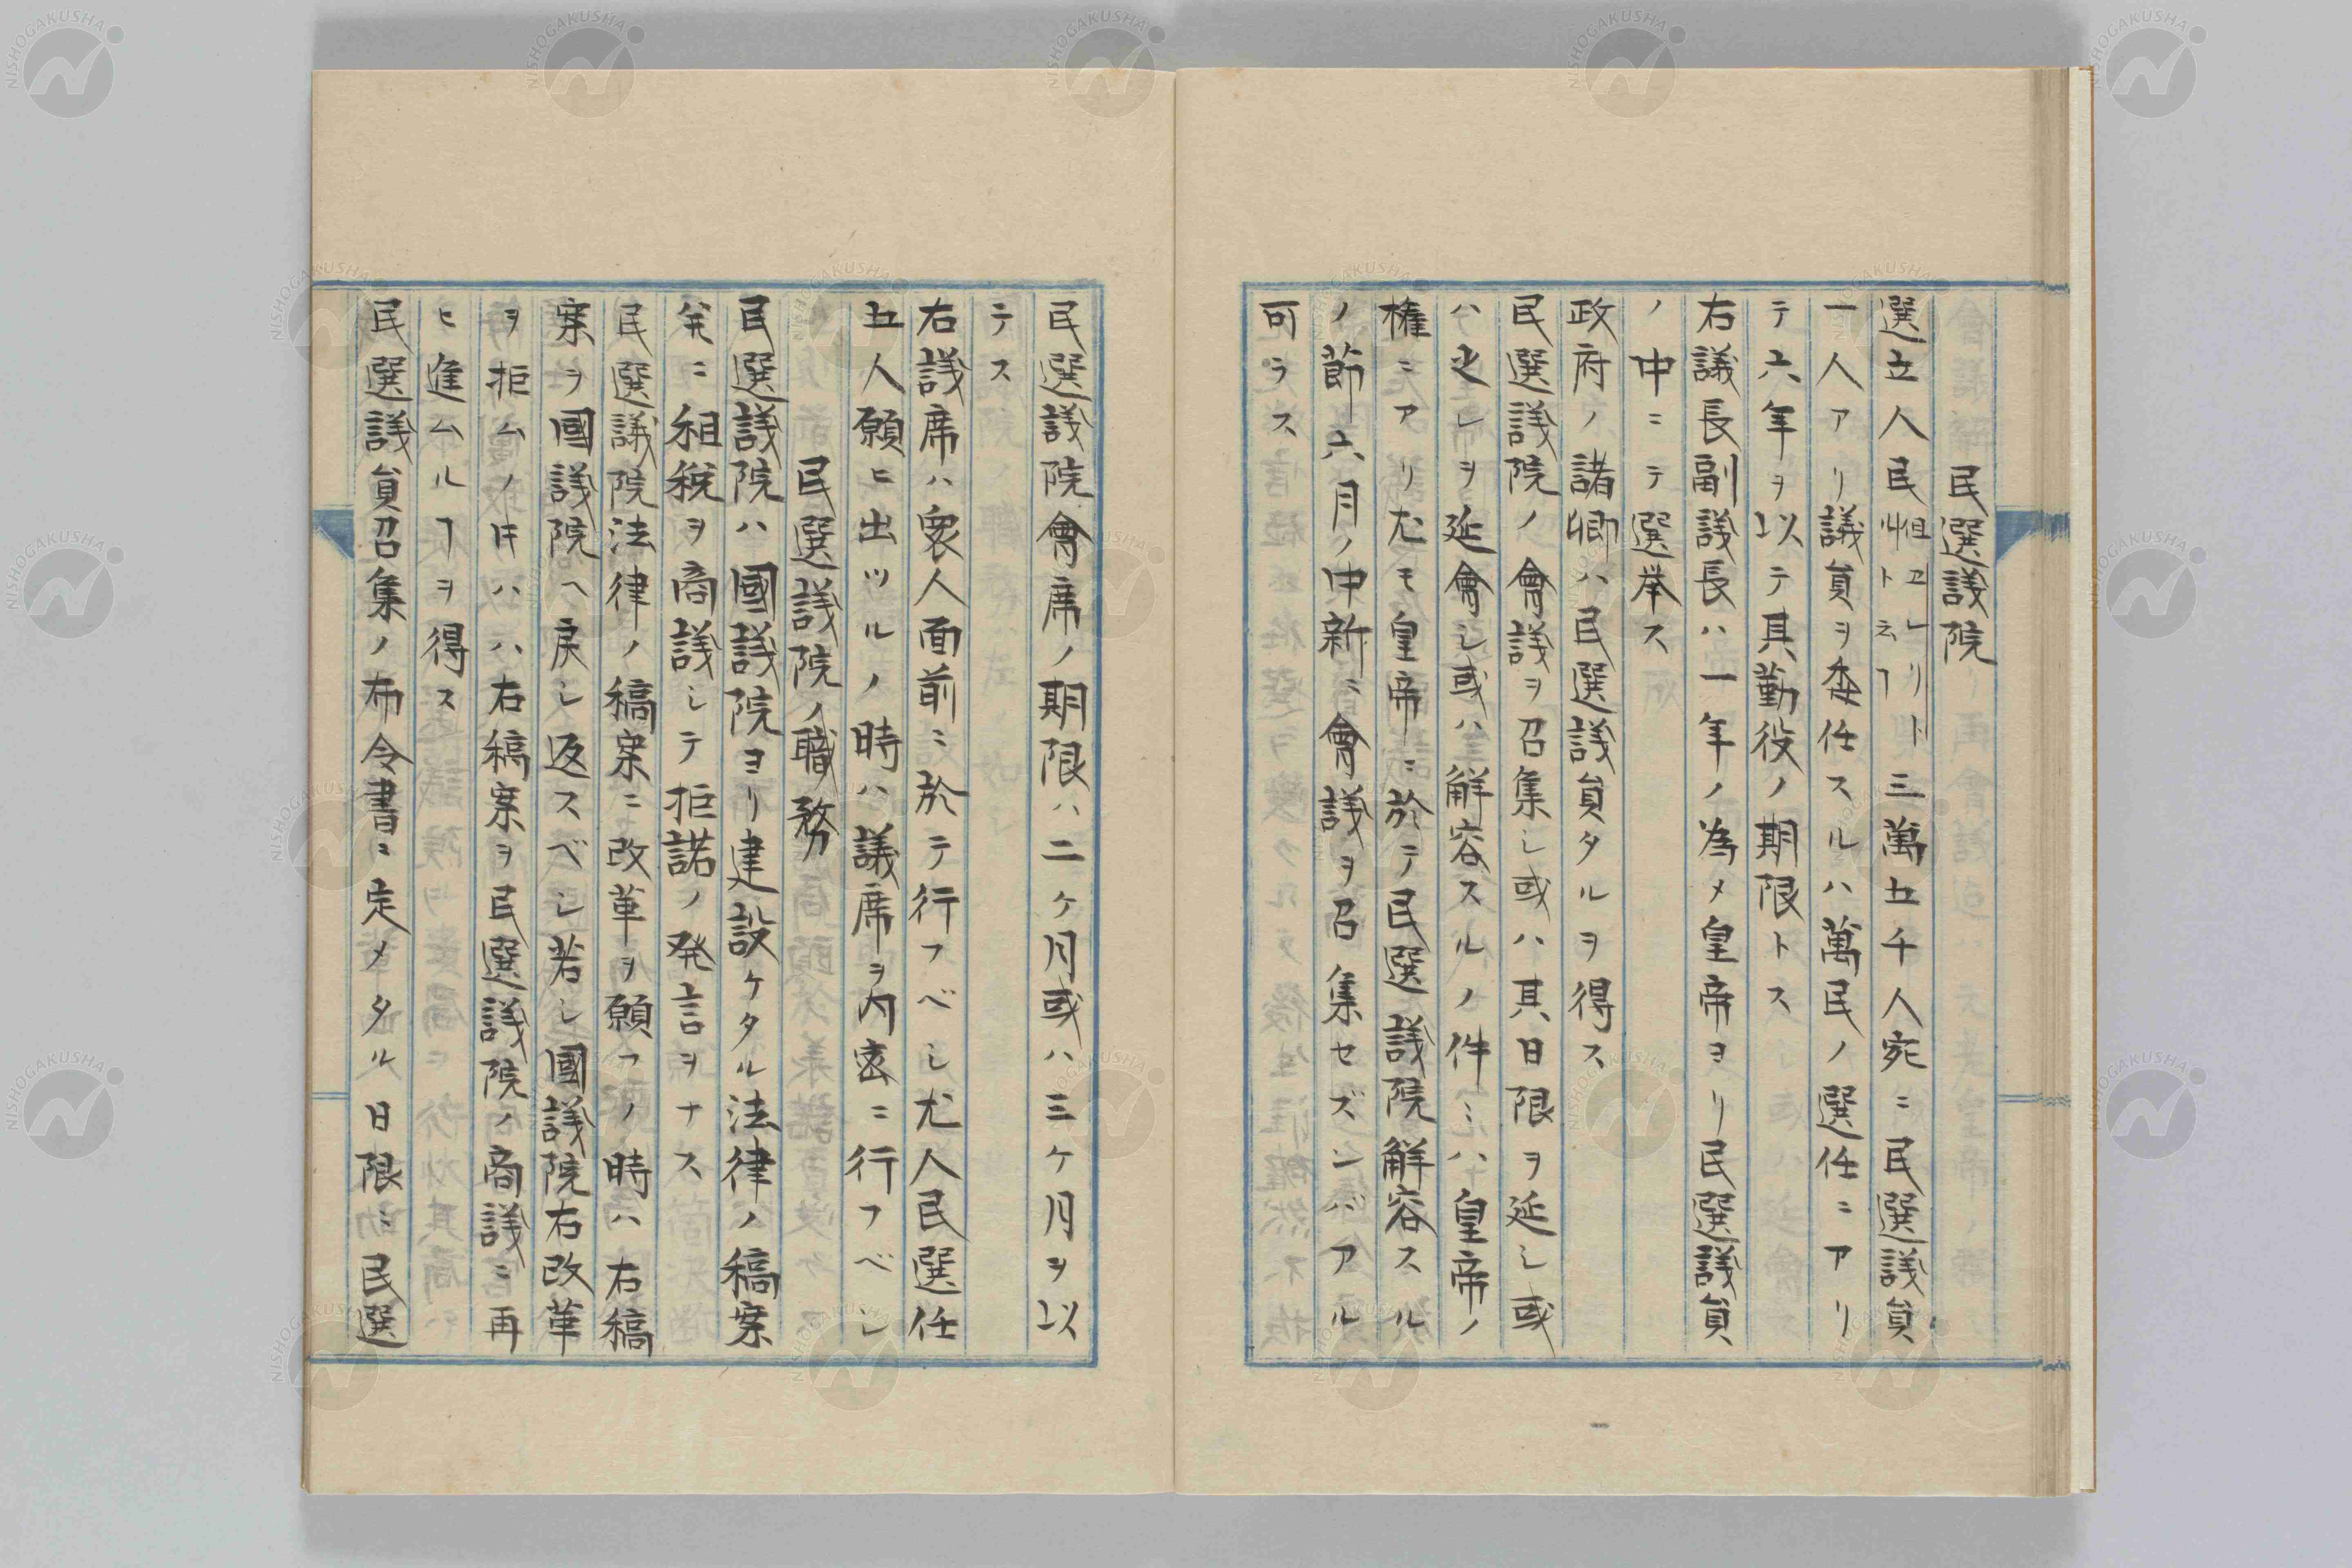 民選議院
選立人民州俎ヱレリトト云ヿ三萬五千人宛ニ民選議貟
一人アリ議貟ヲ委任スルハ萬民ノ選任ニアリ
テ六年ヲ以テ其勤役ノ期限トス
右議長副議長ハ一年ノ為メ皇帝ヨリ民選議貟
ノ中ニテ選挙ス
政府ノ諸卿ハ民選議貟タルヲ得ス
民選議院ノ會議ヲ召集シ或ハ其日限ヲ延シ或
ハ之レヲ延會シ或ハ解容スルノ件ミハ皇帝ノ
権ニアリ尤モ皇帝ニ於テ民選議院解容スル
ノ節六月ノ中新ニ會議ヲ召集セズンバアル
可ラス
民選議院會席ノ期限ハ二ケ月或ハ三ケ月ヲ以
テス
右議席ハ衆人面前ニ於テ行フベシ尤人民選任
五人願ヒ出ツルノ時ハ議席ヲ内密ニ行フベシ
民選議院ノ職務
民選議院ハ國議院ヨリ建設ケタル法律ノ稿案
并ニ租税ヲ商議シテ拒諾ノ発言ヲナス
民選議院法律ノ稿案ニ改革ヲ願フノ時ハ右稿
案ヲ國議院ヘ戻シ返スベシ若シ國議院右改革
ヲ拒ムノ𪜈ハハ右稿案ヲ民選議院ノ商議ニ再
ヒ進ムルヿヲ得ス
民選議貟召集ノ布令書ニ定メタル日限ニ民選
NISHOGAKUSHA